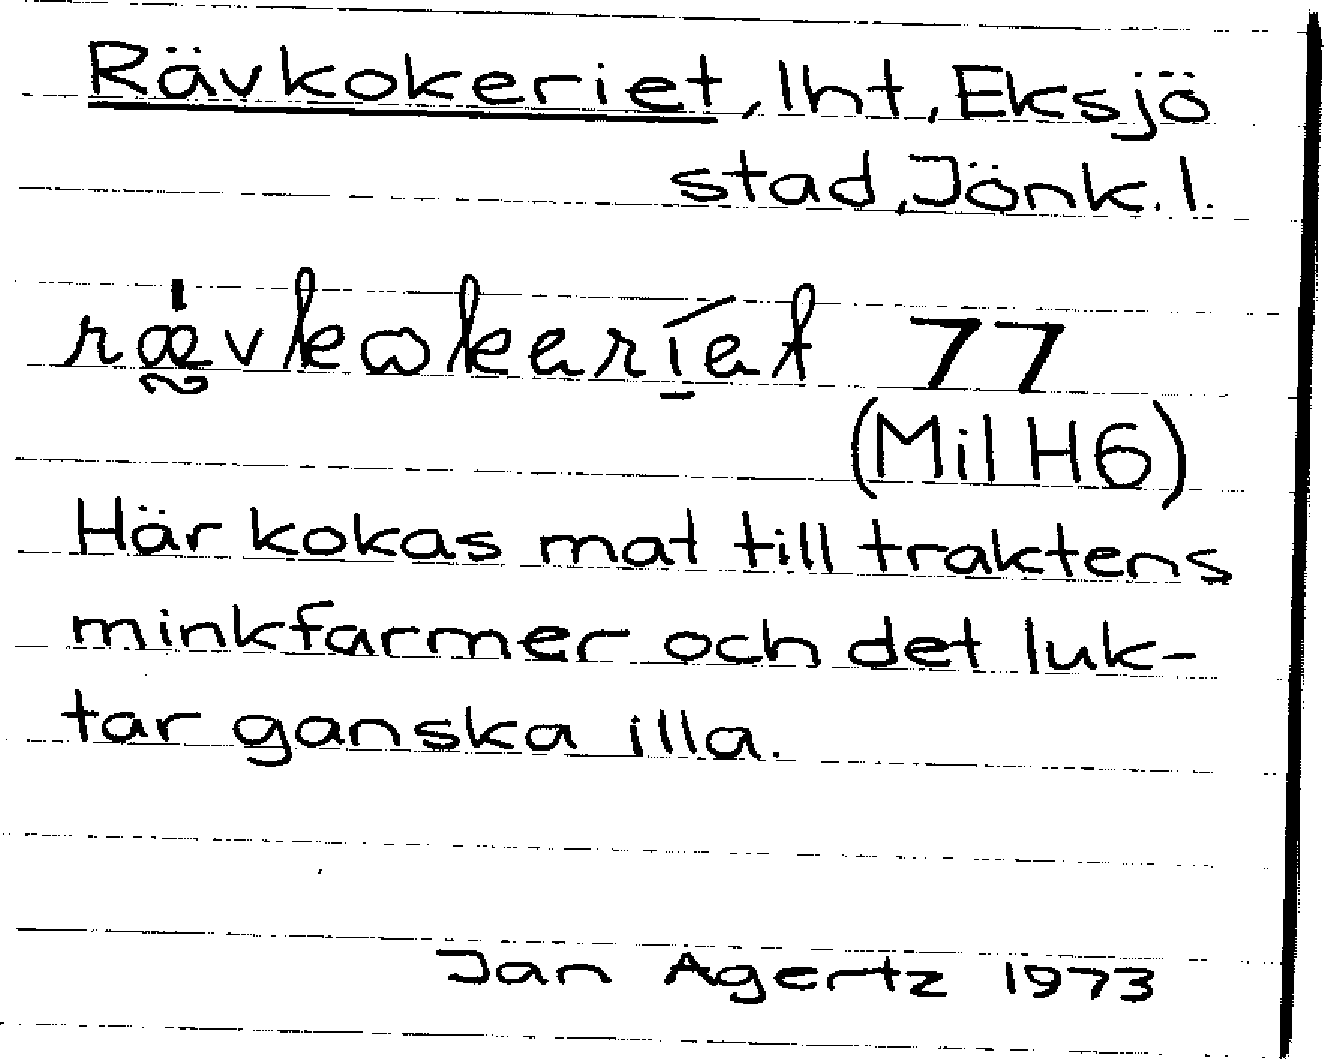 Rävkokeriet, lht, Eksjö
stad, Jönk. l.
rävkωkeríet 77
(Mil H6)
Här kokas mat till traktens
minkfarmer och det luk-
tar ganska illa.
Jan Agertz 1973